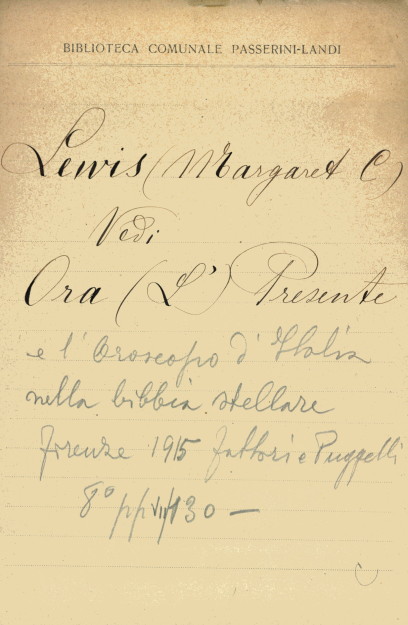 BIBLIOTECA COMUNALE PASSERINI-LANDI
Lewis (Margaret C)
Vedi
Ora (L') Presente
e l'Oroscopo d'Italia
nella bibbia stellare
Firenze 1915 Fattori e Puggelli
8° pp VIII 130 —